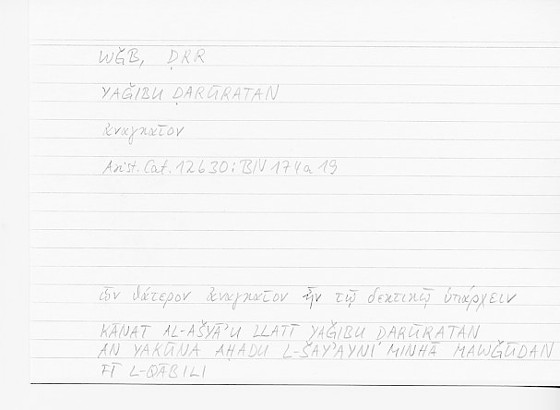 WǦB, ḌRR
YAǦIBU ḌARŪRATAN
ἀναγκαῖον
Arist. Cat. 12b30; BN 174a19
ὧν θάτερον ἀναγκαῖον ἦν τῷ δεκτικῷ ὑπάρχειν
KĀNAT AL-AŠYĀʾU LLATĪ YAǦIBU ḌARŪRATAN
AN YAKŪNA AḤADU L-ŠAYʾAYNI MINHĀ MAWǦŪDAN
FĪ L-QĀBILI